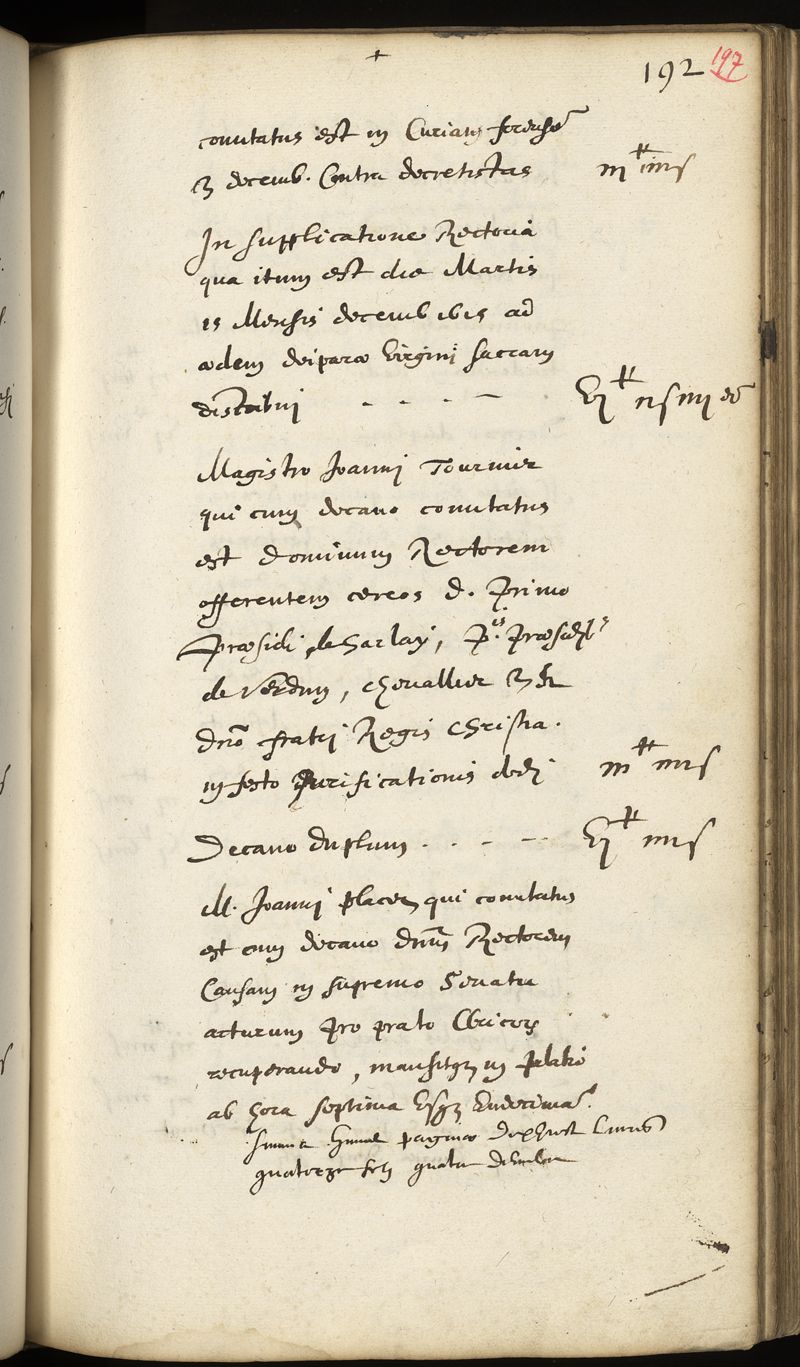 192 197
comitatus est in Curiam forensē
3 decemb. Contra decretistas iii# iiiis
In supplicatione Rectoria
qua itum est die Martis
15 Mensis decemb 1615 ad
ædem deiparæ Virgini sacram
distribui
Magistro Joanni Tournier
qui cum decano comitatus
est Dominum Rectorem
offerentem cereos d. Primo
Præsidi de Harlay, P. Præsidi
de Verdun, chevallier &
dno fratri Regis Christia.
in festo purificationis dedi iii# iiiis
Decano duplum vi#
M. Joanni placet qui comitatus
est cum decano dnum Rectorem
Causam in supremo Senatu
acturum pro prato Clericorum
recuperando, mansitque in palatio
ab hora septima usque undecimam.
Summa paginæ
quatorze solz quatre